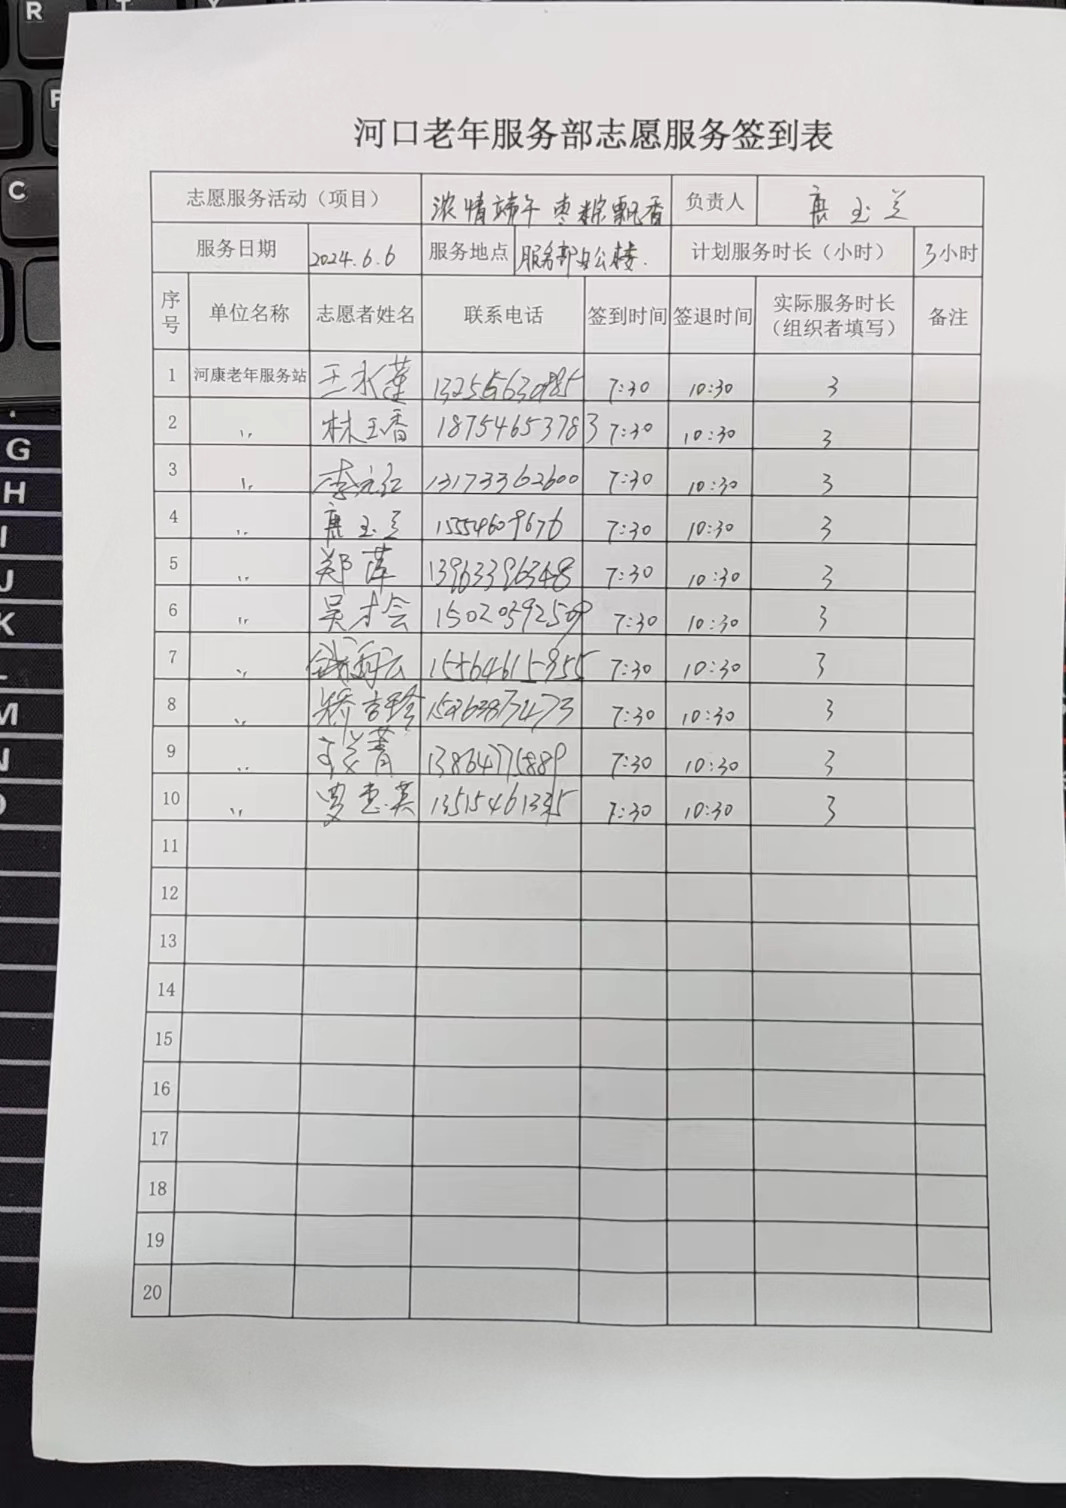 河口老年服务部志愿服务签到表
志愿服务活动（项目） 浓情端午 枣粽飘香 负责人 唐玉兰
服务日期 2024.6.6 服务地点 服务部办公楼. 计划服务时长（小时） 3小时
序号 单位名称 志愿者姓名 联系电话 签到时间 签退时间 实际服务时长（组织者填写） 备注
1 河康老年服务站 王永莲 7:30 10:30 3
2 〃 林玉香 18754653783 7:30 10:30 3
3 〃 李元红 13173362600 7:30 10:30 3
4 〃 唐玉兰 15554609676 7:30 10:30 3
5 〃 郑萍 13963396348 7:30 10:30 3
6 〃 吴才会 15020592509 7:30 10:30 3
7 〃 15564615955 7:30 10:30 3
8 〃 7:30 10:30 3
9 〃 7:30 10:30 3
10 〃 7:30 10:30 3
11
12
13
14
15
16
17
18
19
20
R
T
Y
F
C
G
H
I
J
K
L
M
N
O